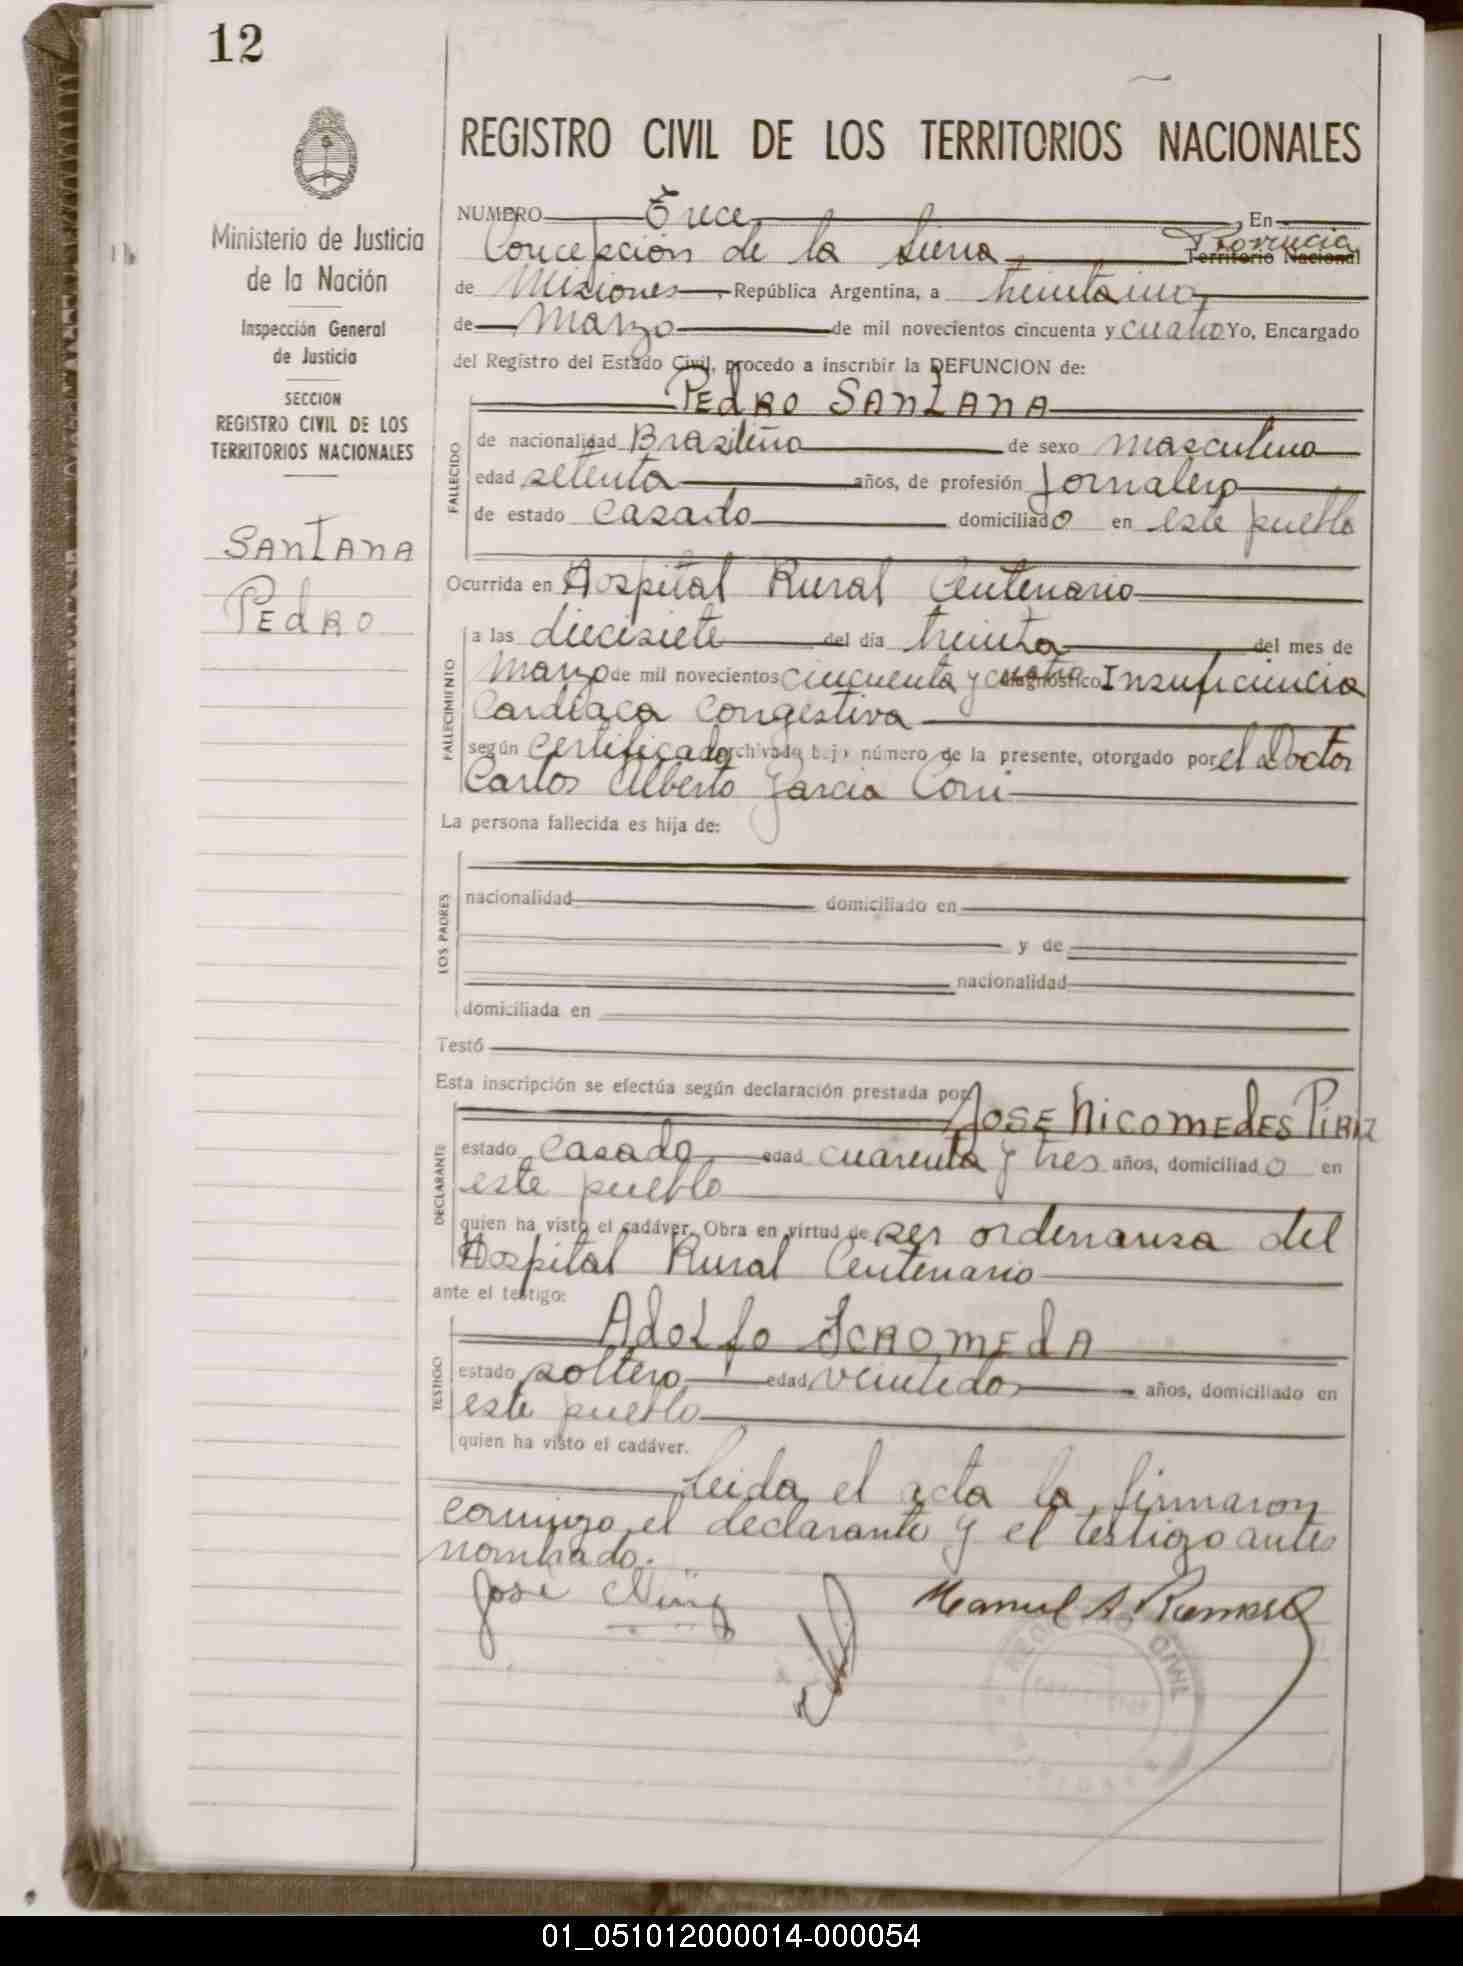 12
REGISTRO CIVIL DE LOS TERRITORIOS NACIONALES
Ministerio de Justicia
de la Nación
Inspección General
de Justicia
SECCION
REGISTRO CIVIL DE LOS
TERRITORIOS NACIONALES
SANTANA
PEdRO
NUMERO Trece En
Concepción de la Sierra Provincia
Territorio Nacional
de Misiones, República Argentina, a treinta uno
de Marzo de mil novecientos cincuenta y cuatro Yo, Encargado
del Registro del Estado Civil, procedo a inscribir la DEFUNCION de:
PEdRO SANTANA
FALLECIDO
de nacionalidad Brasileña de sexo masculino
edad setenta años, de profesión Jornalero
de estado casado domiciliado en este pueblo
Ocurrida en Hospital Rural Centenario
FALLECIMIENTO
a las diecisiete del día treinta del mes de
Marzo de mil novecientos cincuenta y cuatro diagnóstico Insuficiencia
Cardíaca Congestiva
según certificado archivado bajo número de la presente, otorgado por el Doctor
Carlos Alberto Garcia
La persona fallecida es hija de:
LOS PADRES
nacionalidad domiciliado en
y de
nacionalidad
domiciliada en
Testó
Esta inscripción se efectúa según declaración prestada por JOSE NICOMEdES PIRIZ
DECLARANTE
estado casado edad cuarenta y tres años, domiciliado en
este pueblo
quien ha visto el cadáver. Obra en virtud de ser ordenanza del
Hospital Rural Centenario
ante el testigo:
AdOLfO SCROMEdA
TESTIGO
estado soltero edad veintidos años, domiciliado en
este pueblo
quien ha visto el cadáver.
Leida el acta la firmaron
conmigo el declarante y el testigo antes
nombrado.
José Manuel A.
REGISTRO CIVIL
01_051012000014-000054